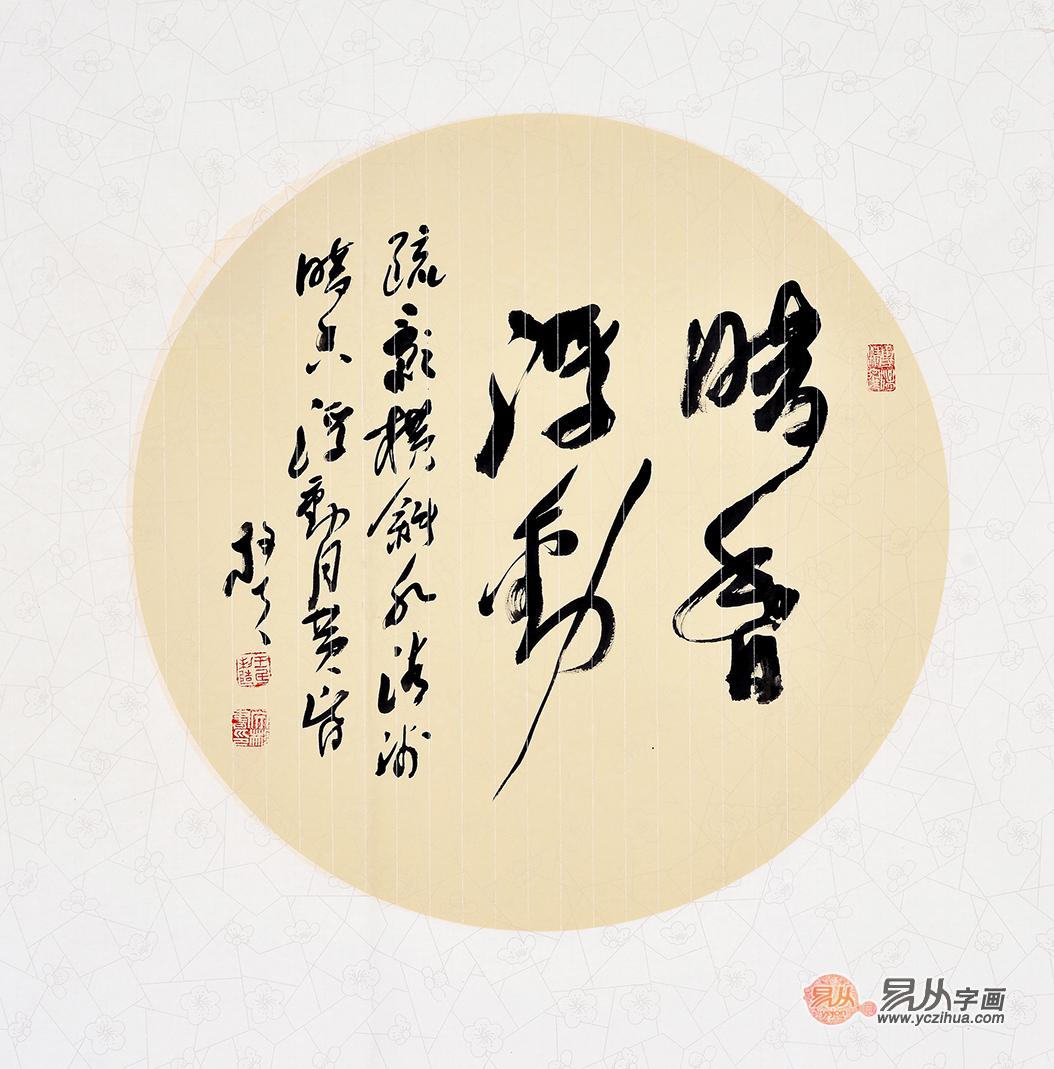 暗香
浮動
疏影横斜水清淺
暗香浮動月黄昏
易从
易从字画
www.yczihua.com